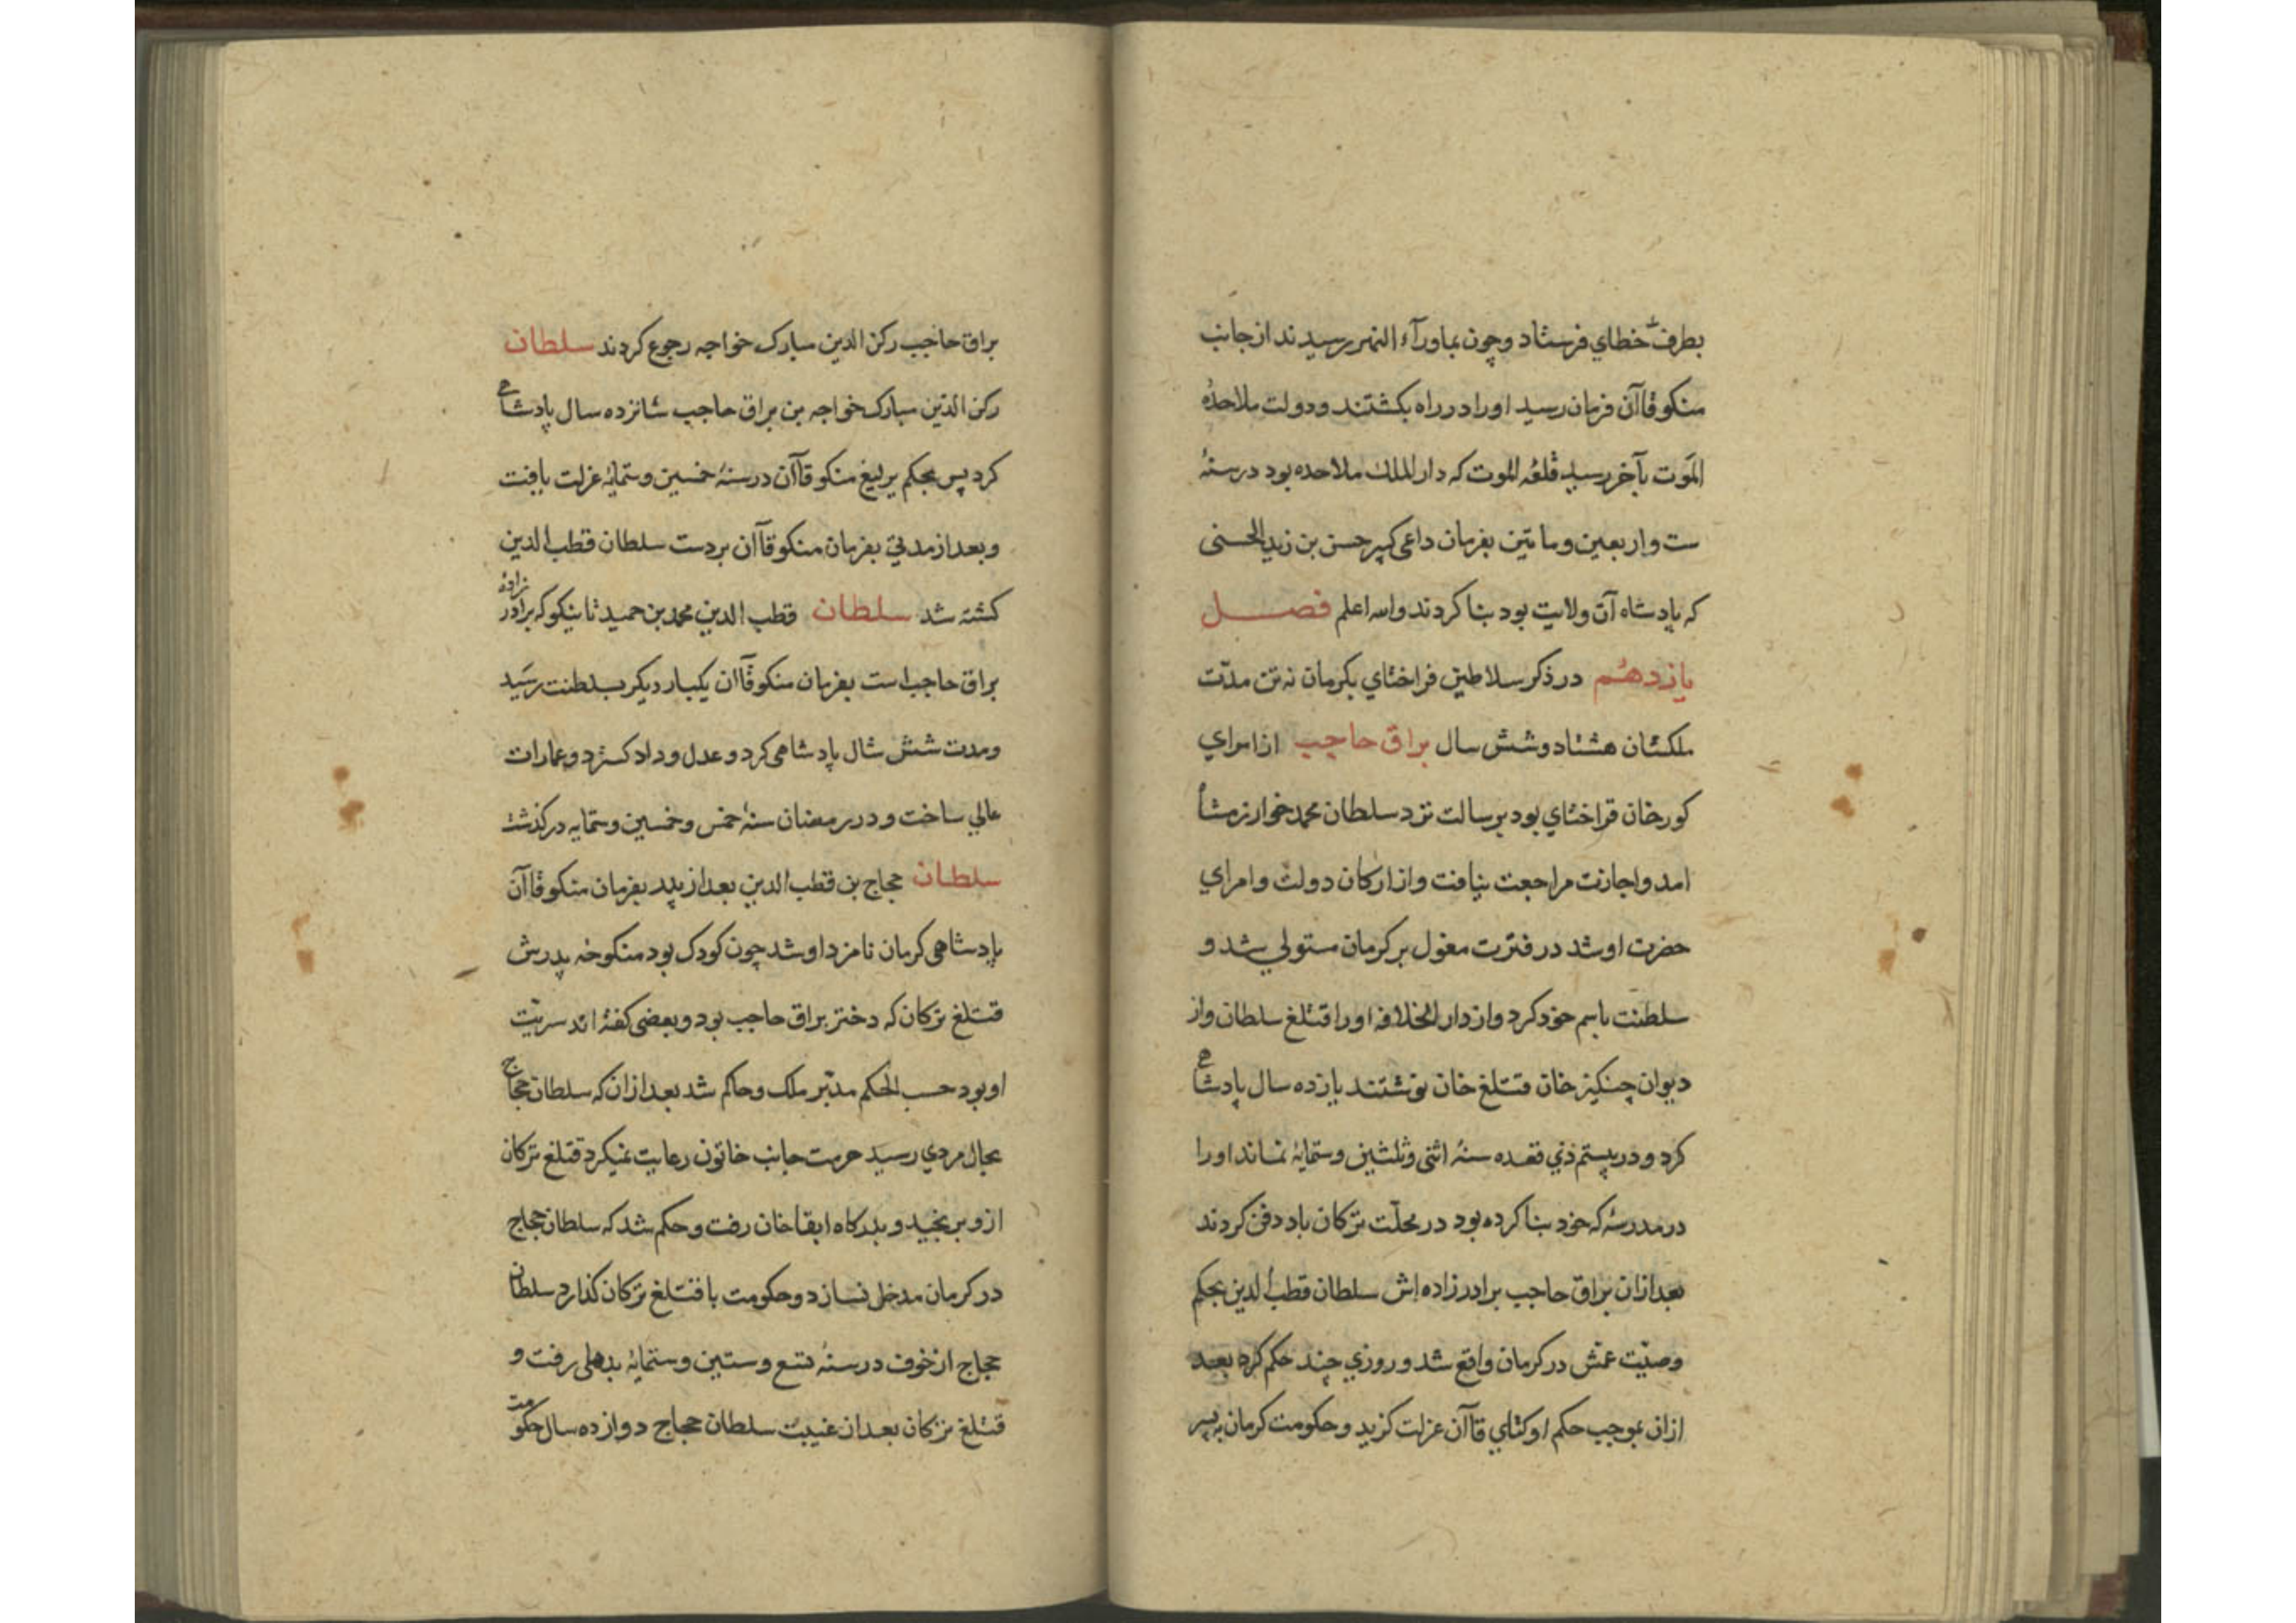 بطرف خطاي فرستاد وچون بماورآء النهر رسيدند از جانب
منكو قاآن فرمان رسيد اورا در راه بكشتند ودولت ملاحدۀ
الموت بآخر رسيد قلعۀ الموت كه دار الملك ملاحده بود در سنۀ
ست واربعين وماتين بفرمان داعى كبير حسن بن زيد الحسنى
كه پادشاه آن ولايت بود بنا كردند والله اعلم فصل
يازدهم در ذكر سلاطين قراختاي بكرمان نه تن مدّت
ملكشان هشتاد وشش سال براق حاجب از امراي
كورخان قراختاي بود برسالت نزد سلطان محمد خوارزمشاه
امد واجازت مراجعت نيافت واز اركان دولت وامراي
حضرت او شد در فترت مغول بر كرمان مستولي شد و
سلطنت باسم خود كرد واز دار الخلافه اورا قتلغ سلطان واز
ديوان چنكيز خان قتلغ خان نوشتند يازده سال پادشاهى
كرد و در بيستم ذي قعده سنۀ اثنى وثلثين وستمايۀ نماند اورا
در مدرسۀ كه خود بنا كرده بود در محلّت تركان باد دفن كردند
بعد ازان براق حاجب برادر زاده اش سلطان قطب الدين بحكم
وصيّت عمش در كرمان واقع شد و روزي چند حكم كرد بعد
ازان بموجب حكم اوكتاي قاآن عزلت كزيد وحكومت كرمان به پسر
براق حاجب ركن الدين مبارك خواجه رجوع كردند سلطان
ركن الدين مبارك خواجه بن براق حاجب شانزده سال پادشاهى
كرد پس بحكم يرليغ منكو قاآن در سنۀ خمسين وستمايۀ عزلت يافت
وبعد از مدتي بفرمان منكو قاآن بر دست سلطان قطب الدين
كشته شد سلطان قطب الدين محمد بن حميد تاينكو كه برادر زادۀ
براق حاجب است بفرمان منكو قاآن يكبار ديكر بسلطنت رسيد
ومدت شش سال پادشاهى كرد و عدل وداد كسترد وعمارات
عالي ساخت و در رمضان سنۀ خمس وخمسين وستمايه دركذشت
سلطان حجاج بن قطب الدين بعد از پدر بفرمان منكو قاآن
پادشاهى كرمان نامزد او شد چون كودك بود منكوحه پدرش
قتلغ تركان كه دختر براق حاجب بود وبعضى كفته اند سريّت
او بود حسب الحكم مدبّر ملك وحاكم شد بعد ازان كه سلطان حجاج
بحال مردي رسيد حرمت جانب خاتون رعايت نميكرد قتلغ تركان
ازو برنجيد و بدركاه ابقا خان رفت وحكم شد كه سلطان حجاج
در كرمان مدخل نسازد وحكومت با قتلغ تركان كذارد سلطان
حجاج از خوف در سنۀ تسع وستين وستمايۀ بدهلى رفت و
قتلغ تركان بعد از غيبت سلطان حجاج دوازده سال حكومت